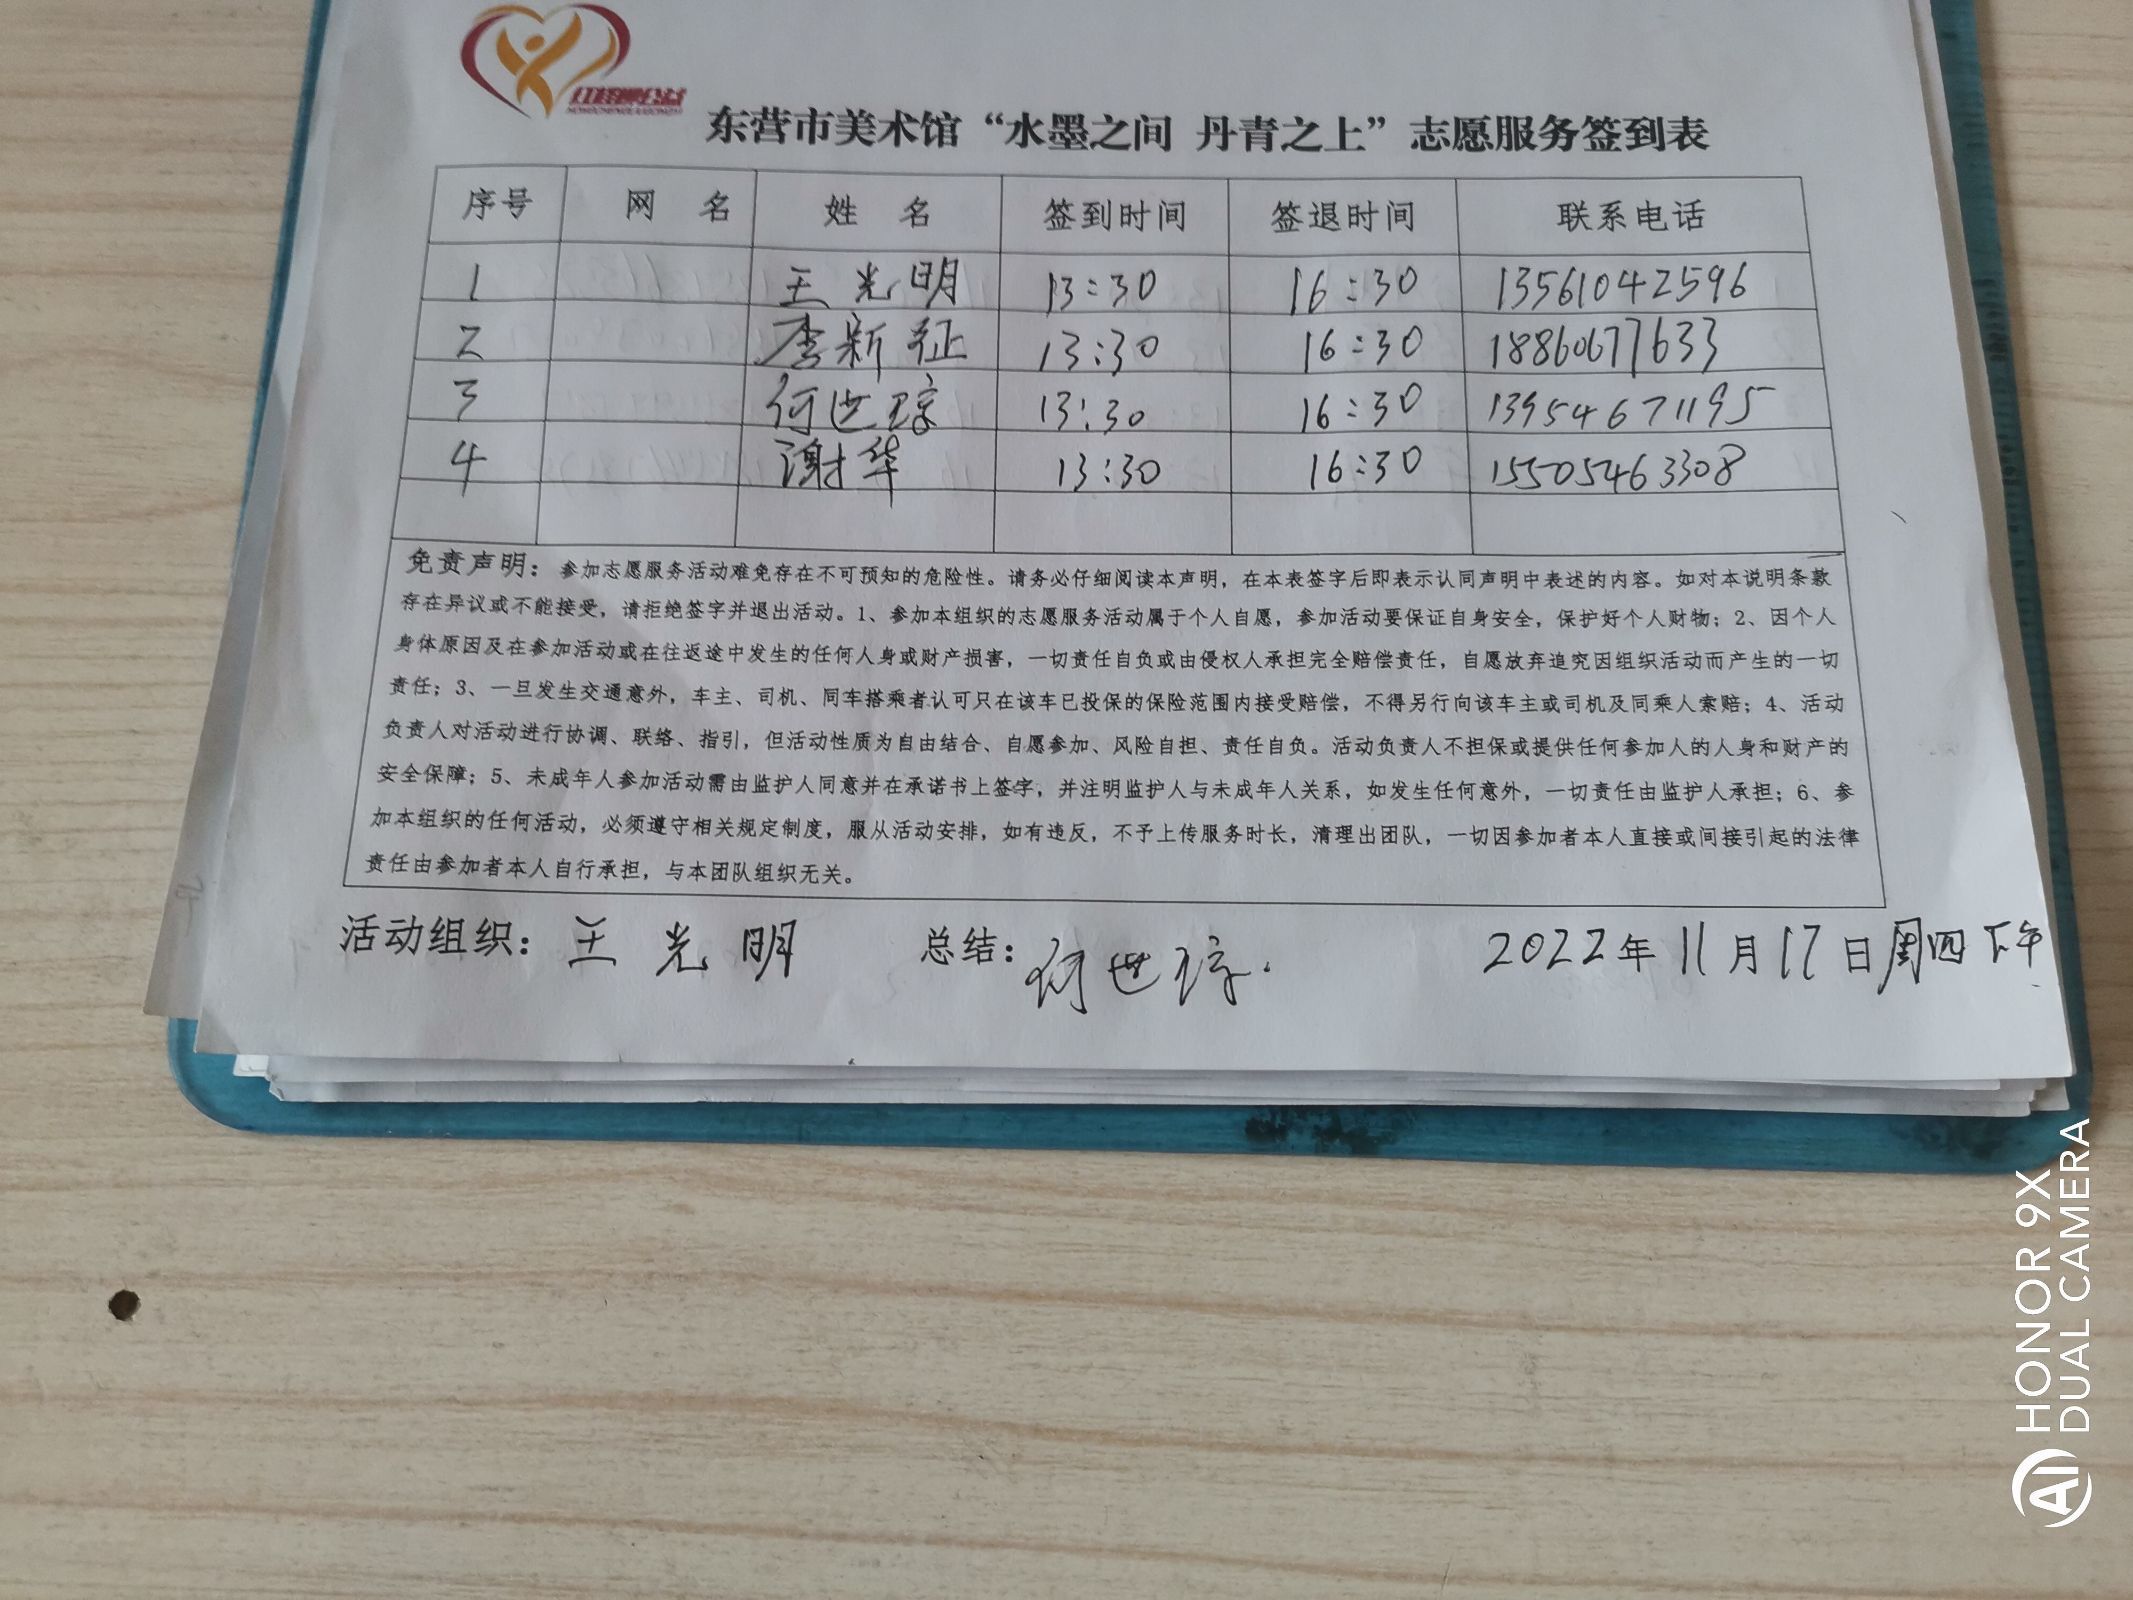 红柽柳公益
东营市美术馆“水墨之间 丹青之上”志愿服务签到表
序号 网 名 姓 名 签到时间 签退时间 联系电话
1 王光明 13:30 16:30 13561042596
2 李新征 13:30 16:30 18860677633
3 何世琼 13:30 16:30 13954671195
4 谢华 13:30 16:30 15505463308
免责声明：参加志愿服务活动难免存在不可预知的危险性。请务必仔细阅读本声明，在本表签字后即表示认同声明中表述的内容。如对本说明条款
存在异议或不能接受，请拒绝签字并退出活动。1、参加本组织的志愿服务活动属于个人自愿，参加活动要保证自身安全，保护好个人财物；2、因个人
身体原因及在参加活动或在往返途中发生的任何人身或财产损害，一切责任自负或由侵权人承担完全赔偿责任，自愿放弃追究因组织活动而产生的一切
责任；3、一旦发生交通意外，车主、司机、同车搭乘者认可只在该车已投保的保险范围内接受赔偿，不得另行向该车主或司机及同乘人索赔；4、活动
负责人对活动进行协调、联络、指引，但活动性质为自由结合、自愿参加、风险自担、责任自负。活动负责人不担保或提供任何参加人的人身和财产的
安全保障；5、未成年人参加活动需由监护人同意并在承诺书上签字，并注明监护人与未成年人关系，如发生任何意外，一切责任由监护人承担；6、参
加本组织的任何活动，必须遵守相关规定制度，服从活动安排，如有违反，不予上传服务时长，清理出团队，一切因参加者本人直接或间接引起的法律
责任由参加者本人自行承担，与本团队组织无关。
活动组织：王光明 总结：何世琼. 2022年11月17日周四下午
HONOR 9X
DUAL CAMERA
AI